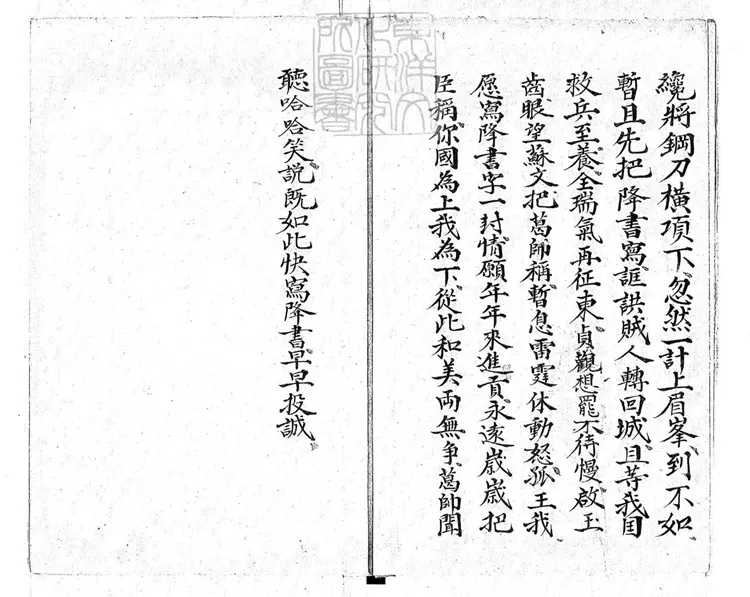 纔將鋼刀橫項下忽然一計上眉峯到不如
暫且先把降書寫誆誆賊人轉回城且等我国
救兵至養全瑞氣再征東貞觀想罷不待慢啟玉
齒眼望蘇文把葛師稱暫息雷霆休動怒孤王我
愿寫降書字一封情願年年來進貢永遠歲歲把
臣稱你國為上我為下從此和美両無争葛師聞
聽哈哈笑説既如此快寫降書早早投誠
東洋文
化研究
院圖書